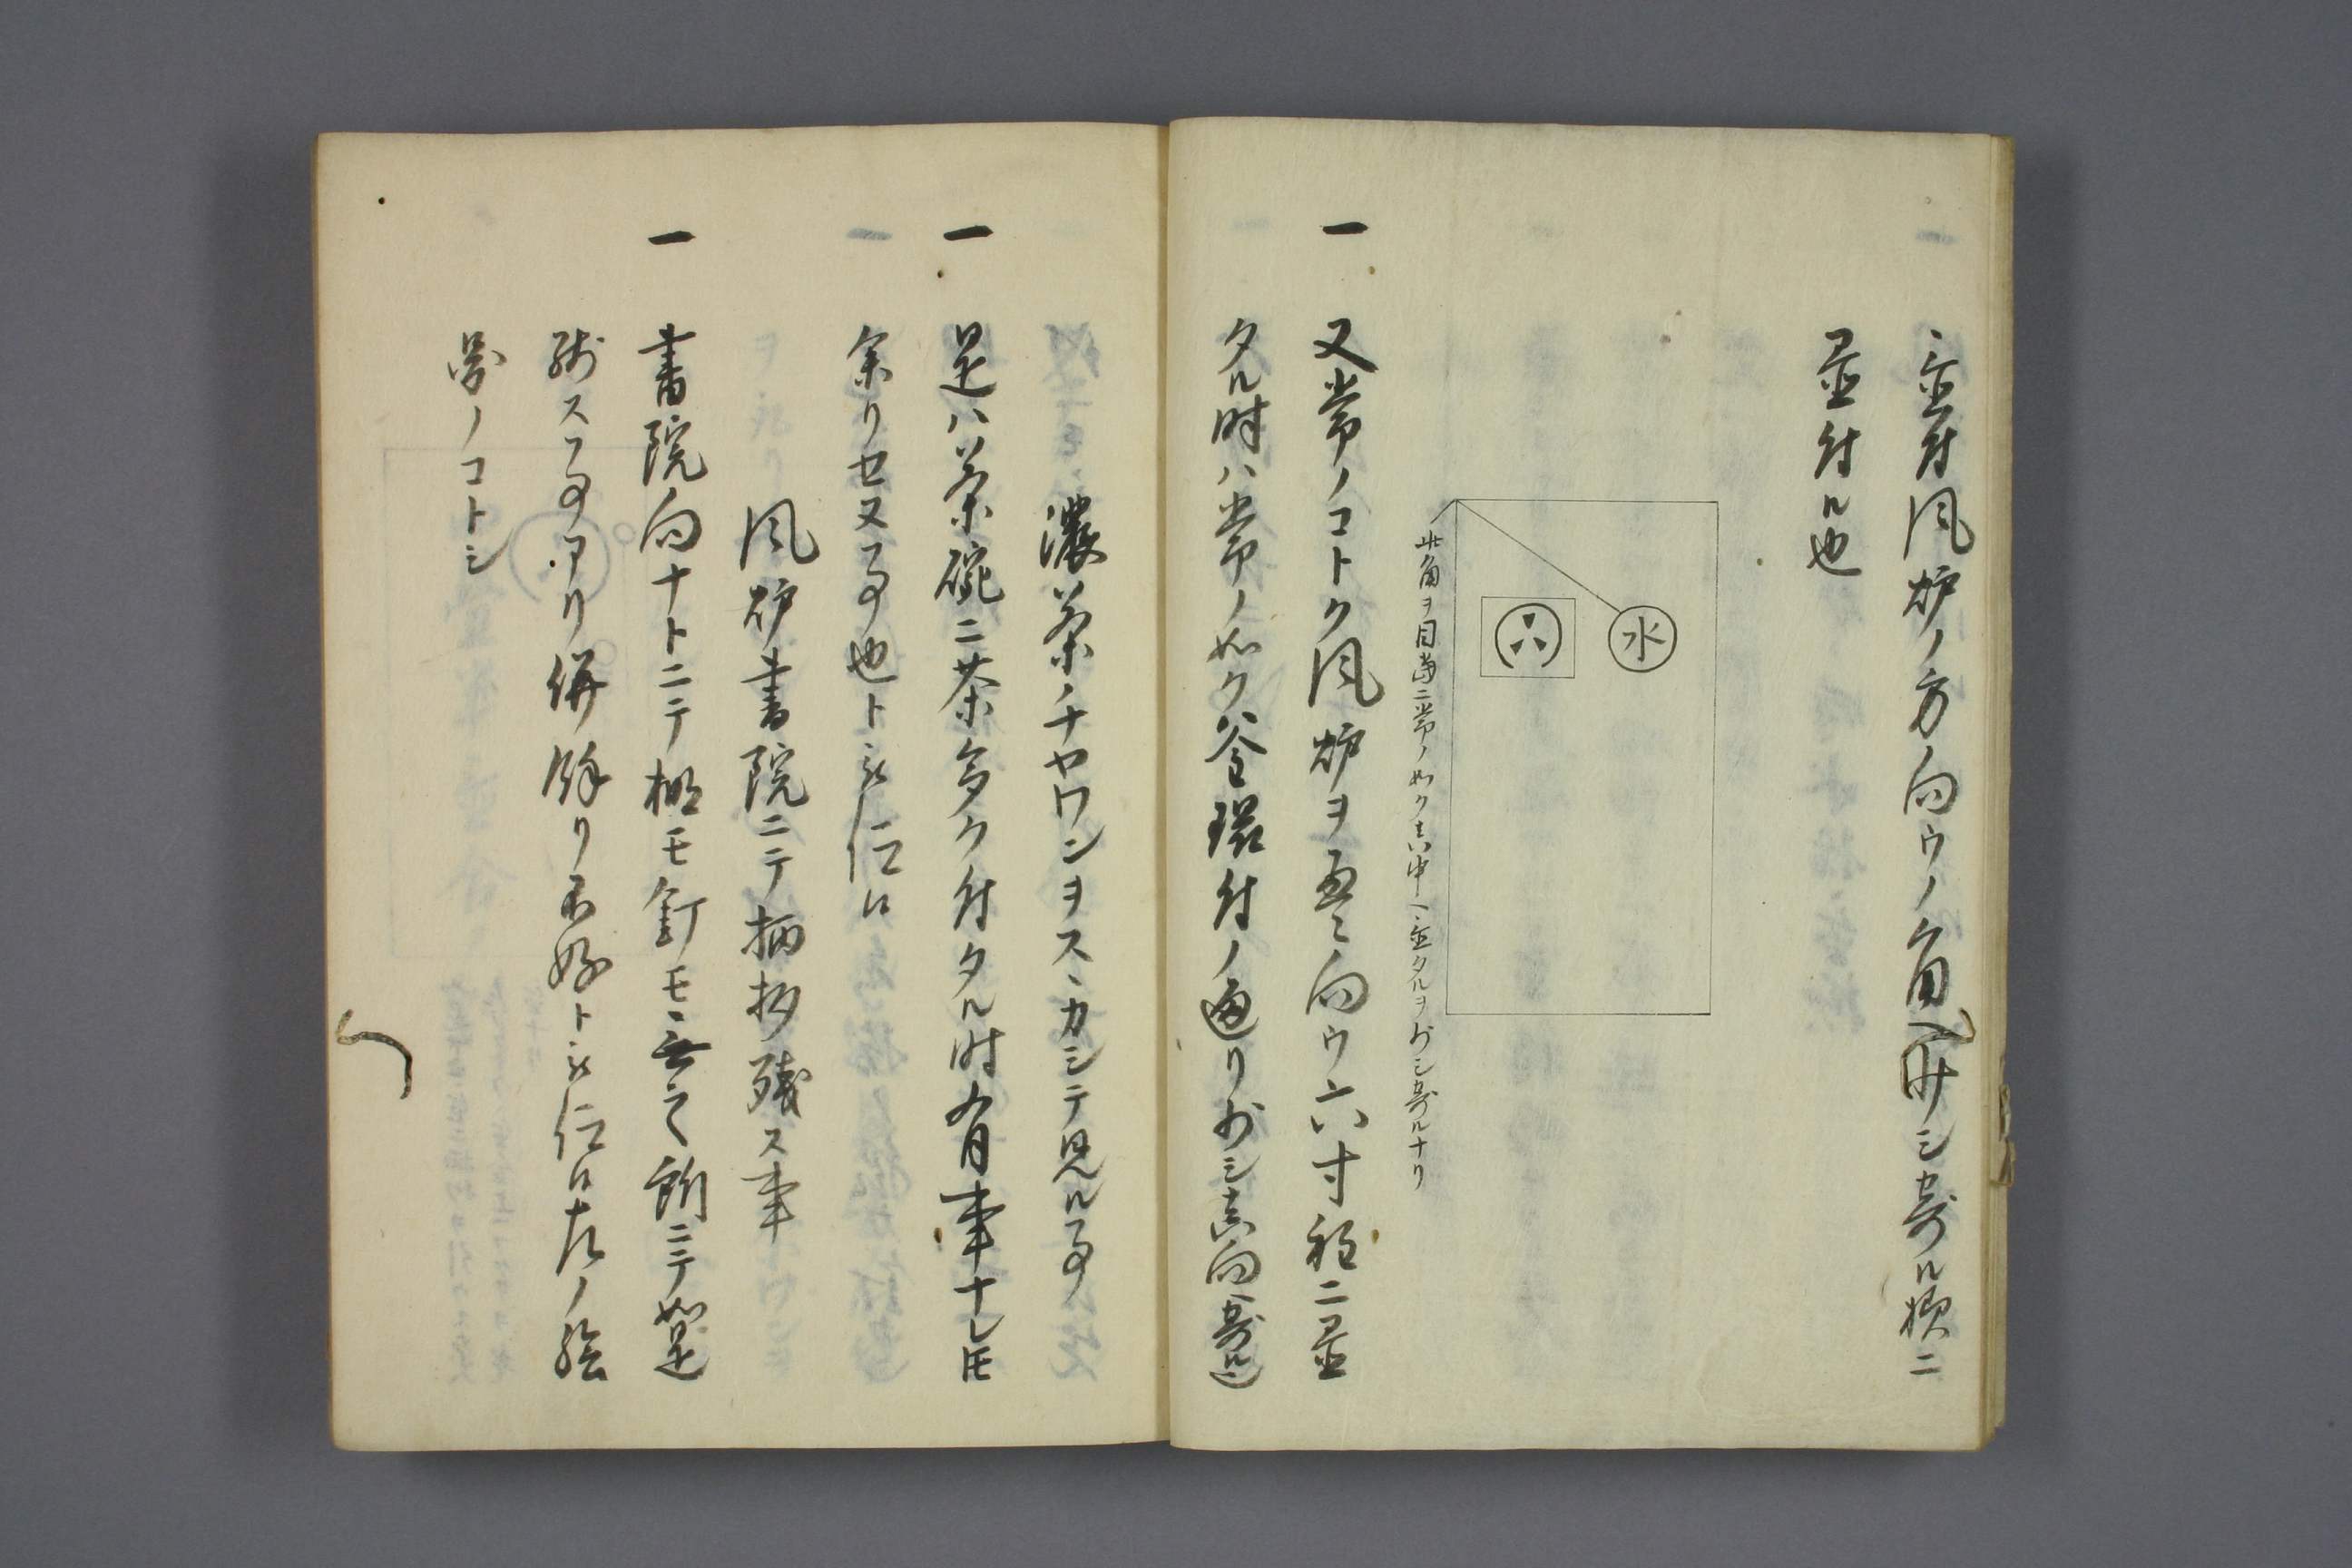 置付風炉ノ方ノ向ウノ角ヘ少シ寄ル様ニ
置付ル也
水
此角ヲ目当ニ常ノ如ク真中ヘ置タルヲ少シ寄ルナリ
一 又常ノコトク風炉ヲ向ウ六寸程ニ置
タル時ハ常ノ如ク釜環付ノ通リ少シ真向ヘ寄ル也
濃茶ノチヤワンヲスヽカシテ見ル事
一 是ハ茶碗ニ茶多ク付タル時有事ナレ𪜈
余リセヌ事也ト
風炉書院ニテ柄杓残ス事
一 書院向ナトニテ棚モ釘モ無之所ニテ如是
残ス事アリ併餘リ不好ト左ノ絵
図ノコトシ